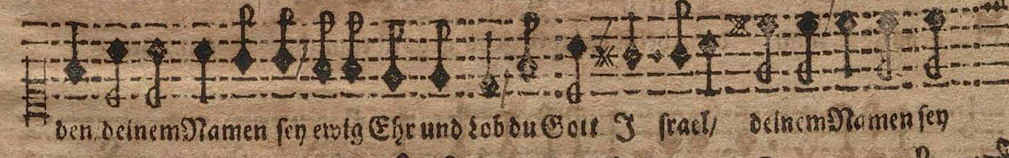 den, deinem Namen sey ewig Ehr und Lob du Gott I srael/ deinem Namen sey